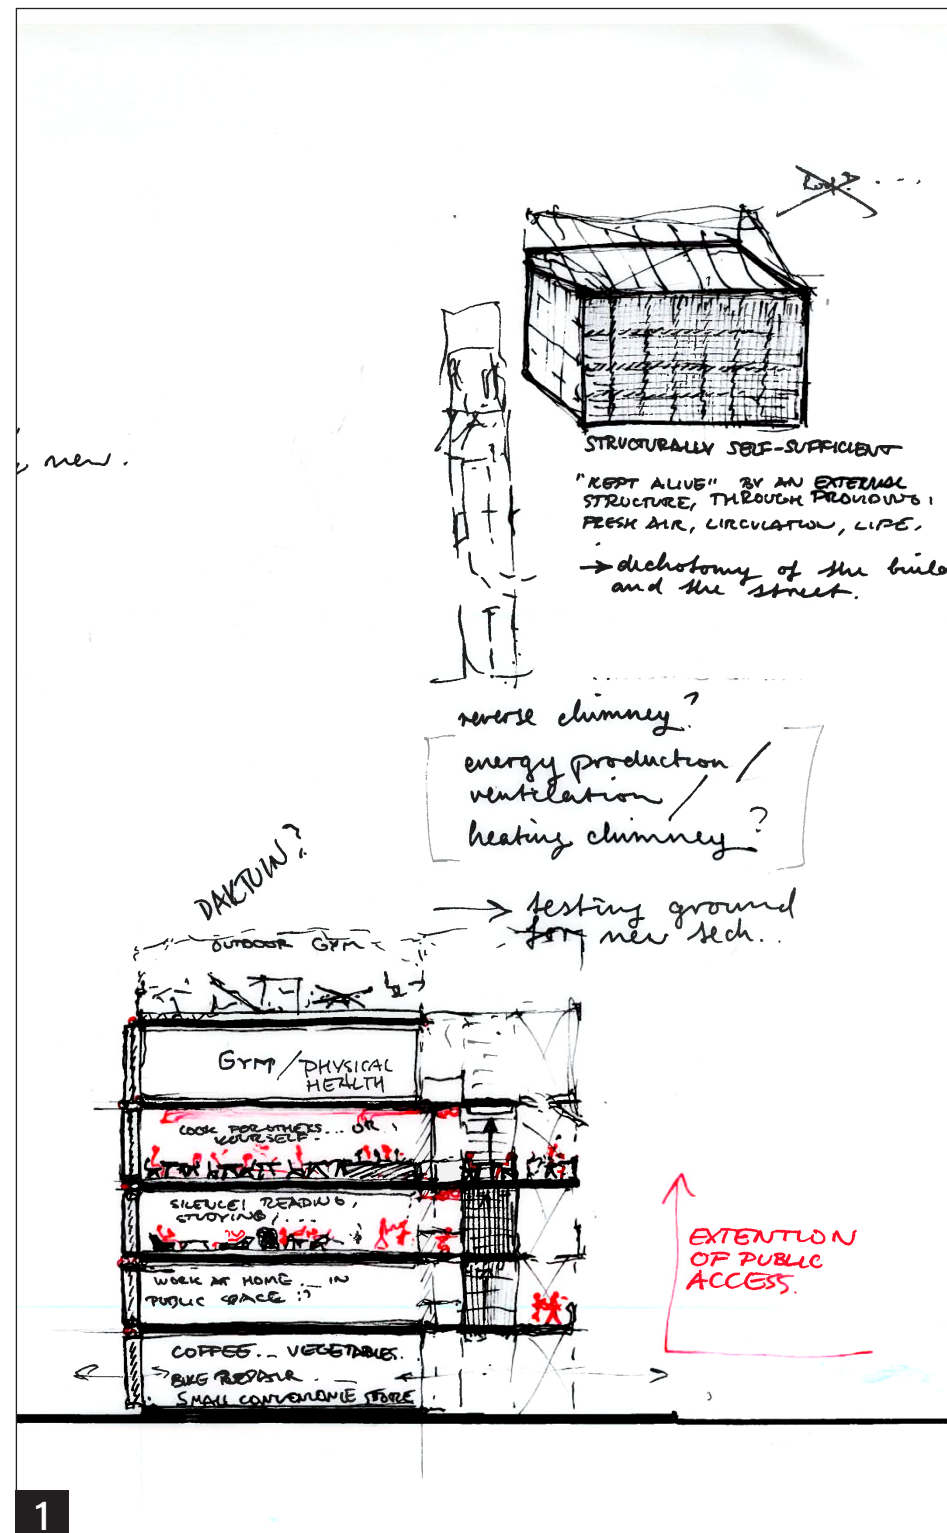 Roof?
new.
STRUCTURALLY SELF-SUFFICIENT
"KEPT ALIVE" BY AN EXTERNAL
STRUCTURE, THROUGH PROVIDING:
FRESH AIR, CIRCULATION, LIFE.
→ dichotomy of the buil
and the street.
reverse chimney?
energy production /
ventilation /
heating chimney?
→ testing ground
for new tech..
DAKTUIN?
OUTDOOR GYM
GYM / PHYSICAL
HEALTH
COOK FOR OTHERS... OR
YOURSELF.
SILENCE! READING,
STUDYING, ...
WORK AT HOME... IN
PUBLIC SPACE !?
COFFEE... VEGETABLES.
BIKE REPAIR...
SMALL CONVENIENCE STORE
EXTENTION
OF PUBLIC
ACCESS.
1